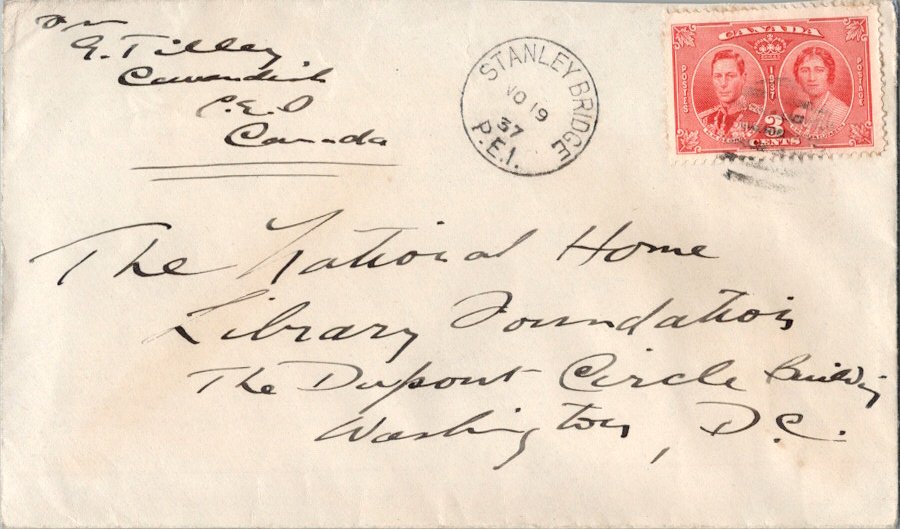 G. Tilley
Cavendish
P.E.I
Canada
STANLEY BRIDGE
NO 19
37
P.E.I.
CANADA
POSTES
1937
POSTAGE
3
CENTS
The National Home
Library Foundation
The Dupont Circle Building
Washington, D.C.